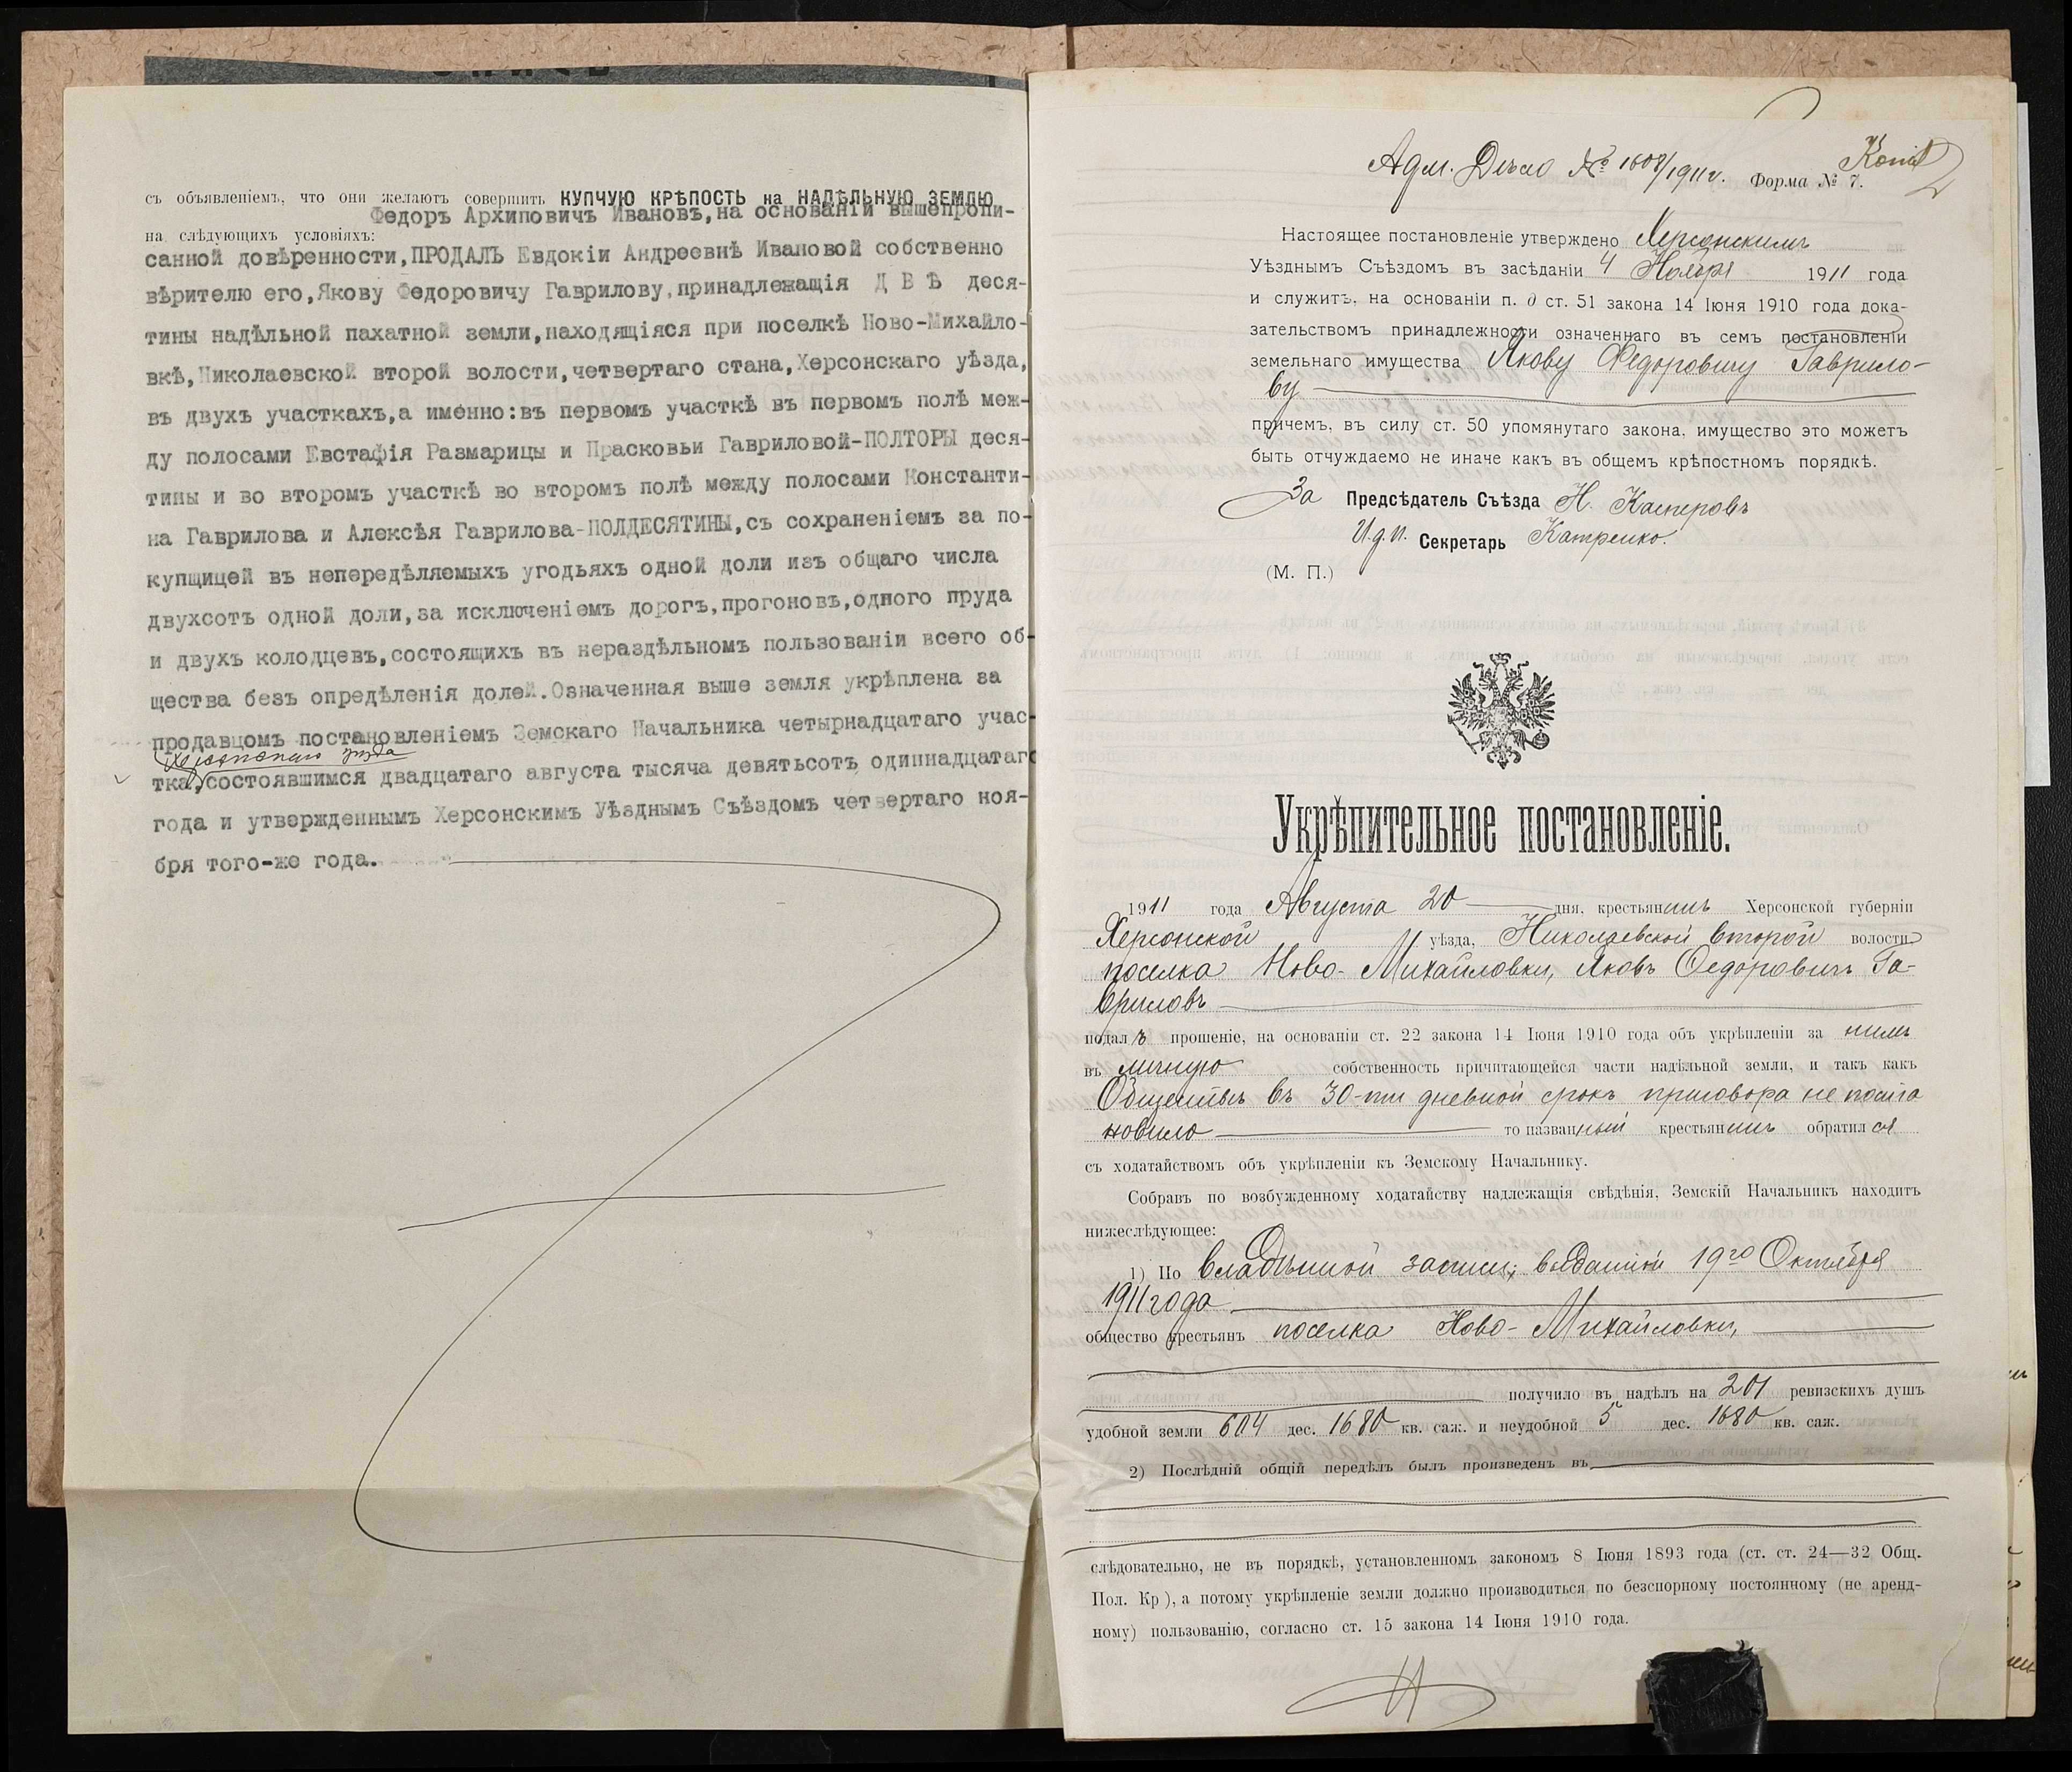 съ объявленіемъ, что они желаютъ совершить КУПЧУЮ КРѢПОСТЬ на НАДѢЛЬНУЮ ЗЕМЛЮ
на слѣдующихъ условіяхъ:
Федоръ Архиповичъ Ивановъ,на основаніи вышепропи-
санной довѣренности,ПРОДАЛЪ Евдокіи Андреевнѣ Ивановой собственно
вѣрителю его,Якову Федоровичу Гаврилову,принадлежащія Д В Ѣ деся-
тины надѣльной пахатной земли,находящіяся при поселкѣ Ново-Михайло-
вкѣ,Николаевской второй волости,четвертаго стана,Херсонскаго уѣзда,
въ двухъ участкахъ,а именно:въ первомъ участкѣ въ первомъ полѣ меж-
ду полосами Евстафія Размарицы и Прасковьи Гавриловой-ПОЛТОРЫ деся-
тины и во второмъ участкѣ во второмъ полѣ между полосами Константи-
на Гаврилова и Алексѣя Гаврилова-ПОЛДЕСЯТИНЫ,съ сохраненіемъ за по-
купщицей въ непередѣляемыхъ угодьяхъ одной доли изъ общаго числа
двухсотъ одной доли,за исключеніемъ дорогъ,прогоновъ,одного пруда
и двухъ колодцевъ,состоящихъ въ нераздѣльномъ пользованіи всего об-
щества безъ опредѣленія долей.Означенная выше земля укрѣплена за
продавцомъ постановленіемъ Земскаго Начальника четырнадцатаго учас-
Херсонскаго уѣзда
тка,состоявшимся двадцатаго августа тысяча девятьсотъ одиннадцатаго
года и утвержденнымъ Херсонскимъ Уѣзднымъ Съѣздомъ четвертаго ноя-
бря того-же года.
Адм. Дѣло № 1608/1911 г. Форма № 7. Копія
2
Настоящее постановленіе утверждено Херсонскимъ
Уѣзднымъ Съѣздомъ въ засѣданіи 4 Ноября 1911 года
и служитъ, на основаніи п. д ст. 51 закона 14 Іюня 1910 года дока-
зательствомъ принадлежности означеннаго въ семъ постановленіи
земельнаго имущества Якову Федоровичу Гаврило-
ву
причемъ, въ силу ст. 50 упомянутаго закона, имущество это можетъ
быть отчуждаемо не иначе какъ въ общемъ крѣпостномъ порядкѣ.
За Предсѣдатель Съѣзда Н. Касперовъ
И.д.п. Секретарь Катренко.
(М. П.)
Укрѣпительное постановленіе.
1911 года Августа 20 дня, крестьянинъ Херсонской губерніи
Херсонской уѣзда, Николаевской второй волости
поселка Ново-Михайловки, Яковъ Федоровичъ Га-
вриловъ
подалъ прошеніе, на основаніи ст. 22 закона 14 Іюня 1910 года объ укрѣпленіи за нимъ
въ личную собственность причитающейся части надѣльной земли, и такъ какъ
Общество въ 30-ти дневной срокъ приговора не поста
новило то названный крестьянинъ обратился
съ ходатайствомъ объ укрѣпленіи къ Земскому Начальнику.
Собравъ по возбужденному ходатайству надлежащія свѣдѣнія, Земскій Начальникъ находитъ
нижеслѣдующее:
1) По владѣнной записи, выданной 19го Октября
1911 года
общество крестьянъ поселка Ново-Михайловки,
получило въ надѣлъ на 201 ревизскихъ душъ
удобной земли 604 дес. 1680 кв. саж. и неудобной 5 дес. 1680 кв. саж.
2) Послѣдній общій передѣлъ былъ произведенъ въ
слѣдовательно, не въ порядкѣ, установленномъ закономъ 8 Іюня 1893 года (ст. ст. 24—32 Общ.
Пол. Кр), а потому укрѣпленіе земли должно производиться по безспорному постоянному (не аренд-
ному) пользованію, согласно ст. 15 закона 14 Іюня 1910 года.